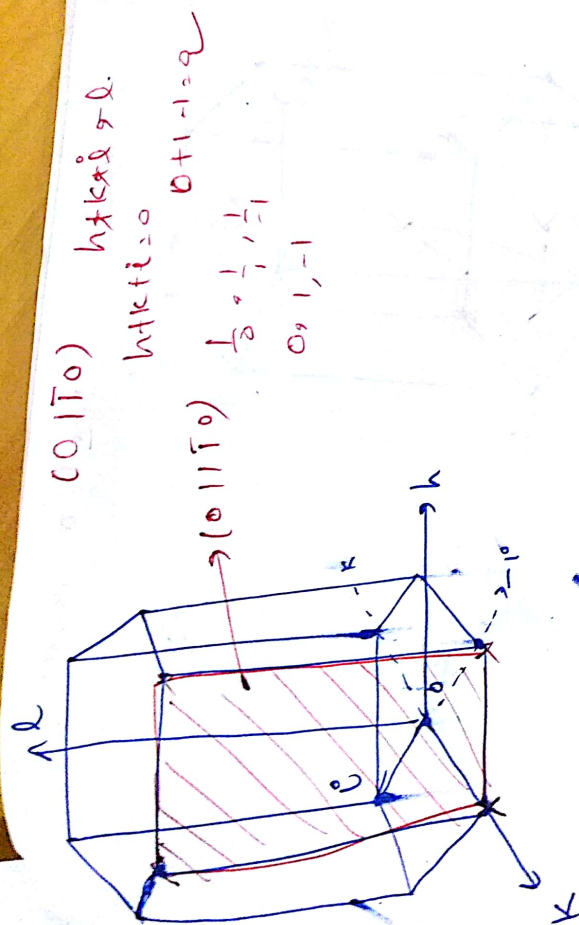 (0 1 1̄ 0)
h+k+i+l.
h+k+i=0
0+1-1=0
1/0, 1/1, 1/-1
0, 1, -1
(0 1 1̄ 0)
l
h
-i
i
o
k